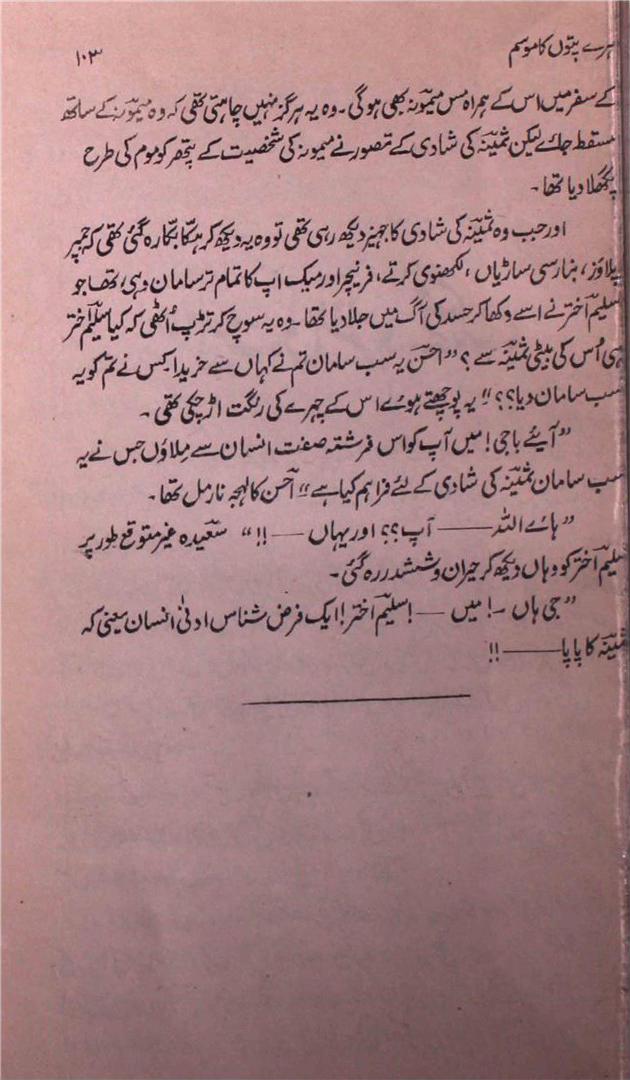 ہرے پتوں کا موسم ۱۰۳
کے سفر میں اس کے ہمراہ مس میمونہ بھی ہوگی۔ وہ یہ ہرگز نہیں چاہتی تھی کہ وہ میمونہ کے ساتھ
مسقط جائے لیکن ثمینہ کی شادی کے تصور نے میمونہ کی شخصیت کے پتھر کو موم کی طرح
پگھلا دیا تھا۔
اور جب وہ ثمینہ کی شادی کا جہیز دیکھ رہی تھی تو وہ یہ دیکھ کر ہکّا بکّا رہ گئی تھی کہ جمپر
بلاؤز، بنارسی ساڑیاں، لکھنوی کرتے، فرنیچر اور میک اپ کا تمام تر سامان وہی تھا جو
سلیم اختر نے اسے دکھا کر حسد کی آگ میں جلا دیا تھا۔ وہ یہ سوچ کر تڑپ اُٹھی کہ کیا سلیم اختر
ہی اُس کی بیٹی ثمینہ سے؟ "احسن یہ سب سامان تم نے کہاں سے خریدا کس نے تم کو یہ
سب سامان دیا؟؟" یہ پوچھتے ہوئے اس کے چہرے کی رنگت اڑ چکی تھی۔
"آیئے باجی! میں آپ کو اس فرشتہ صفت انسان سے ملاؤں جس نے یہ
سب سامان ثمینہ کی شادی کے لئے فراہم کیا ہے" احسن کا لہجہ نارمل تھا۔
"ہائے اللہ —— آپ؟؟ اور یہاں —!!" سعیدہ غیر متوقع طور پر
سلیم اختر کو وہاں دیکھ کر حیران و ششدر رہ گئی۔
"جی ہاں —! میں —! سلیم اختر! ایک فرض شناس ادنیٰ انسان یعنی کہ
ثمینہ کا پاپا ——!!